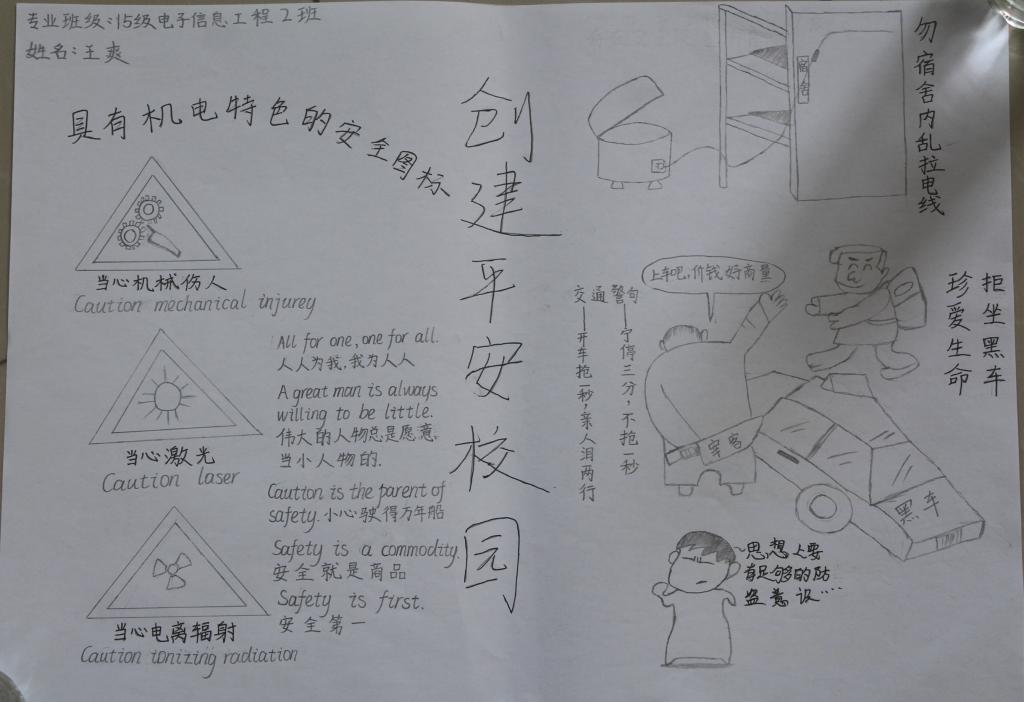 专业班级:15级电子信息工程2班
姓名:王爽
具有机电特色的安全图标
当心机械伤人
Caution mechanical injurey
当心激光
Caution laser
当心电离辐射
Caution ionizing radiation
All for one, one for all.
人人为我,我为人人
A great man is always
willing to be little.
伟大的人物总是愿意,
当小人物的.
Caution is the parent of
safety.小心驶得万年船
Safety is a commodity.
安全就是商品
Safety is first.
安全第一
创建平安校园
宿舍
勿宿舍内乱拉电线
上车吧,价钱好商量
交通警句
——宁停三分,不抢一秒
——开车抢一秒,亲人泪两行
宰客
黑车
拒坐黑车
珍爱生命
思想人要
有足够的防
盗意识····